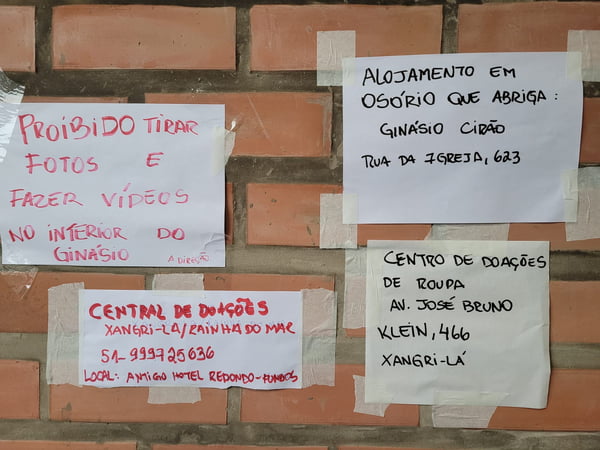 PROIBIDO TIRAR
FOTOS E
FAZER VÍDEOS
NO INTERIOR DO
GINÁSIO
A DIREÇÃO
ALOJAMENTO EM
OSÓRIO QUE ABRIGA:
GINÁSIO CIRÃO
RUA DA IGREJA, 623
CENTRAL DE DOAÇÕES
XANGRI-LÁ/RAINHA DO MAR
51-999725636
LOCAL: ANTIGO HOTEL REDONDO-FUNDOS
CENTRO DE DOAÇÕES
DE ROUPA
AV. JOSÉ BRUNO
KLEIN, 466
XANGRI-LÁ